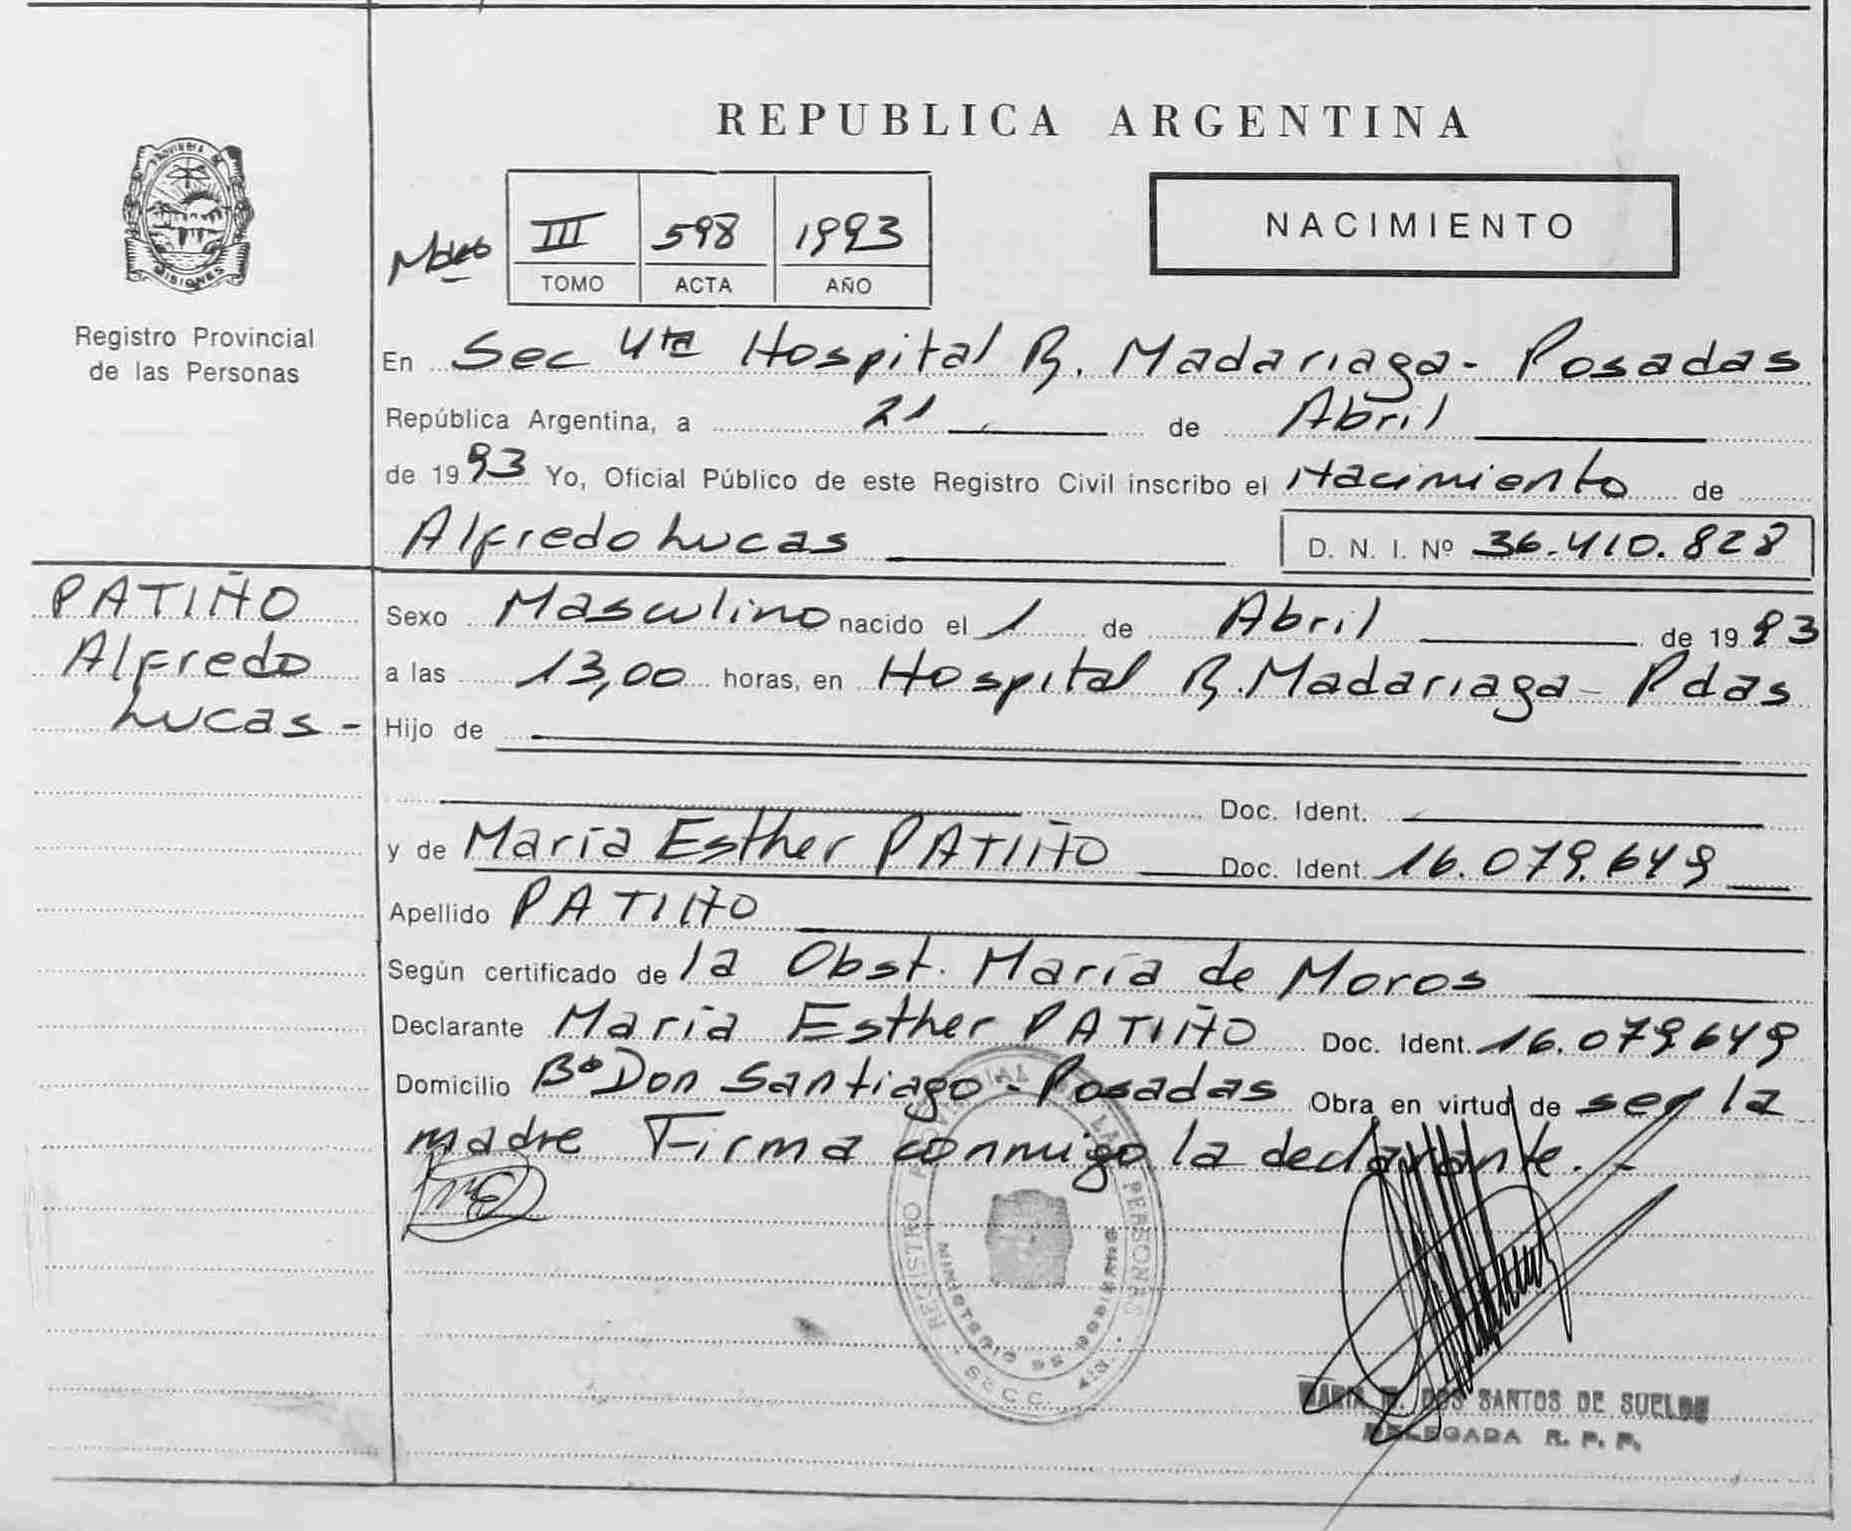 REPUBLICA ARGENTINA
PROVINCIA DE
MISIONES
Registro Provincial
de las Personas
III 598 1993
TOMO ACTA AÑO
NACIMIENTO
En Sec 4ta Hospital R. Madariaga - Posadas
República Argentina, a 21 de Abril
de 1993 Yo, Oficial Público de este Registro Civil inscribo el Nacimiento de
Alfredo Lucas D. N. I. Nº 36.410.828
PATIÑO
Alfredo
Lucas -
Sexo Masculino nacido el 1 de Abril de 1993
a las 13,00 horas, en Hospital R. Madariaga - Pdas
Hijo de
Doc. Ident.
y de María Esther PATIÑO Doc. Ident. 16.079.649
Apellido PATIÑO
Según certificado de la Obst. María de Moros
Declarante María Esther PATIÑO Doc. Ident. 16.079.649
Domicilio Bº Don Santiago - Posadas Obra en virtud de ser la
madre Firma conmigo la declarante. -
REGISTRO PROVINCIAL DE LAS PERSONAS
MINISTERIO DE GOBIERNO
MARIA DOS SANTOS DE SUELDE
DELEGADA R. P. P.